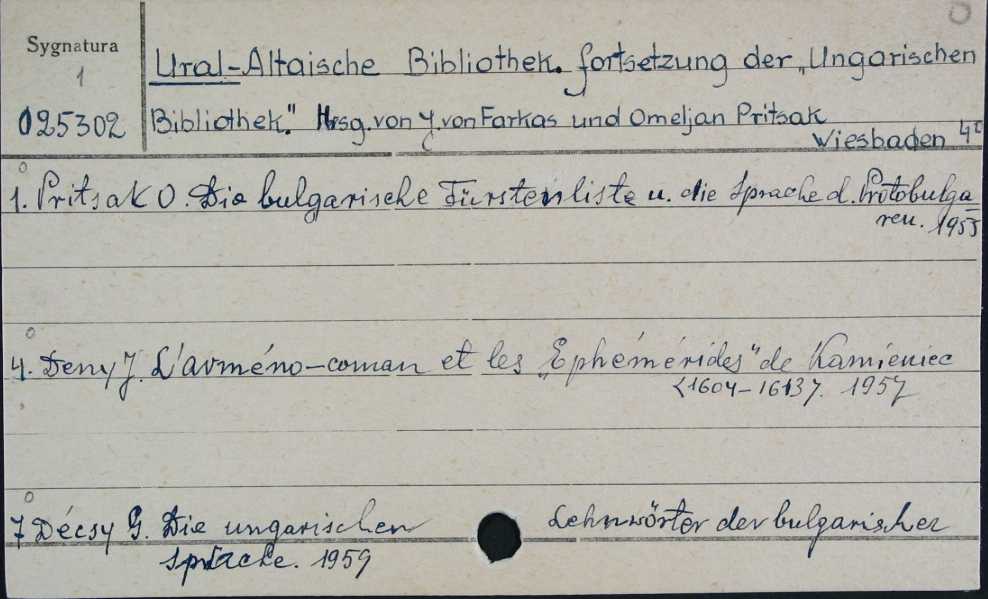 Sygnatura
1
025302
Ural-Altaische Bibliothek. fortsetzung der „Ungarischen
Bibliothek." Hrsg. von J. von Farkas und Omeljan Pritsak
Wiesbaden 4°
1. Pritsak O. Die bulgarische Fürstenliste u. die Sprache d. Protobulga
ren. 1955
4. Deny J. L'arméno-coman et les „Ephémérides" de Kamieniec
<1604-1613>. 1957
7 Décsy G. Die ungarischen Lehnwörter der bulgarischer
Sprache. 1959